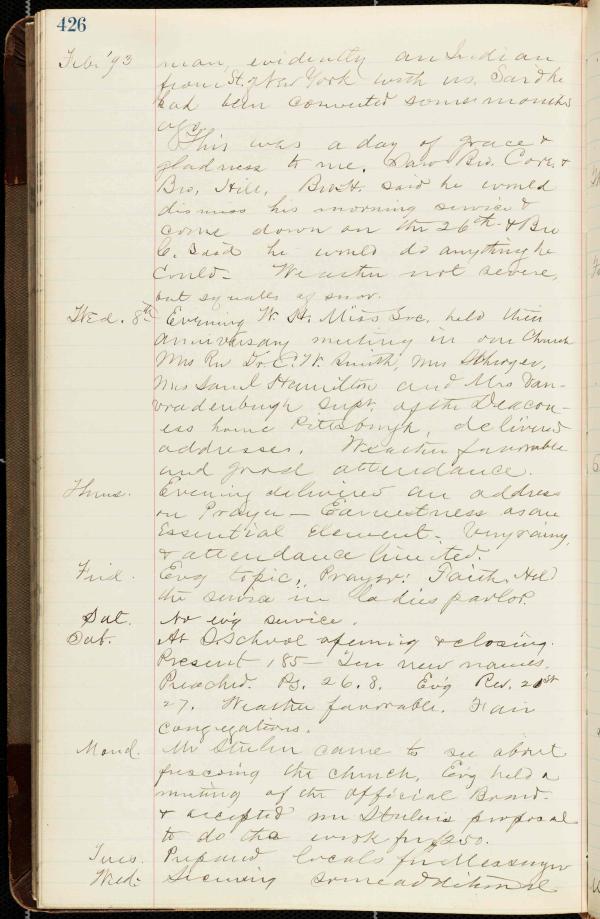 426
Feb. '93 man, evidently an Indian
from St. of New York with us. Said he
had been converted some months
ago.
This was a day of grace &
gladness to me. Saw Bro. Core. &
Bro. Hill. Bro H. said he would
dismiss his morning service &
come down on the 26th & Bro
C. said he would do anything he
could. Weather not severe,
but squalls of snow.
Wed. 8th Evening W. H. Miss Soc. held their
anniversary meeting in our Church
Mrs Rev Dr. C. W. Smith, Mrs
Mrs Saml Hamilton and Mrs Van-
vradenburgh Supt. of the Deacon-
ess home Pittsburgh, delivered
addresses. Weather favorable
and good attendance.
Thurs. Evening delivered an address
on Prayer — Earnestness as an
Essential Element. Very rainy,
& attendance limited.
Frid. Evg topic, Prayer: Faith. Held
the service in ladies parlor.
Sat. No ev'g service.
Sab. At S. School opening & closing.
Present 185 — Ten new names.
Preached. Ps. 26.8. Ev'g Rev. 21st
27. Weather favorable. Fair
congregations.
Mond. Mr Stulen came to see about
frescoing the church. Evg held a
meeting of the Official Board.
& accepted Mr Stulen's proposal
to do the work for $250.
Tues. Prepared locals for Messenger
Wed. Securing some additional